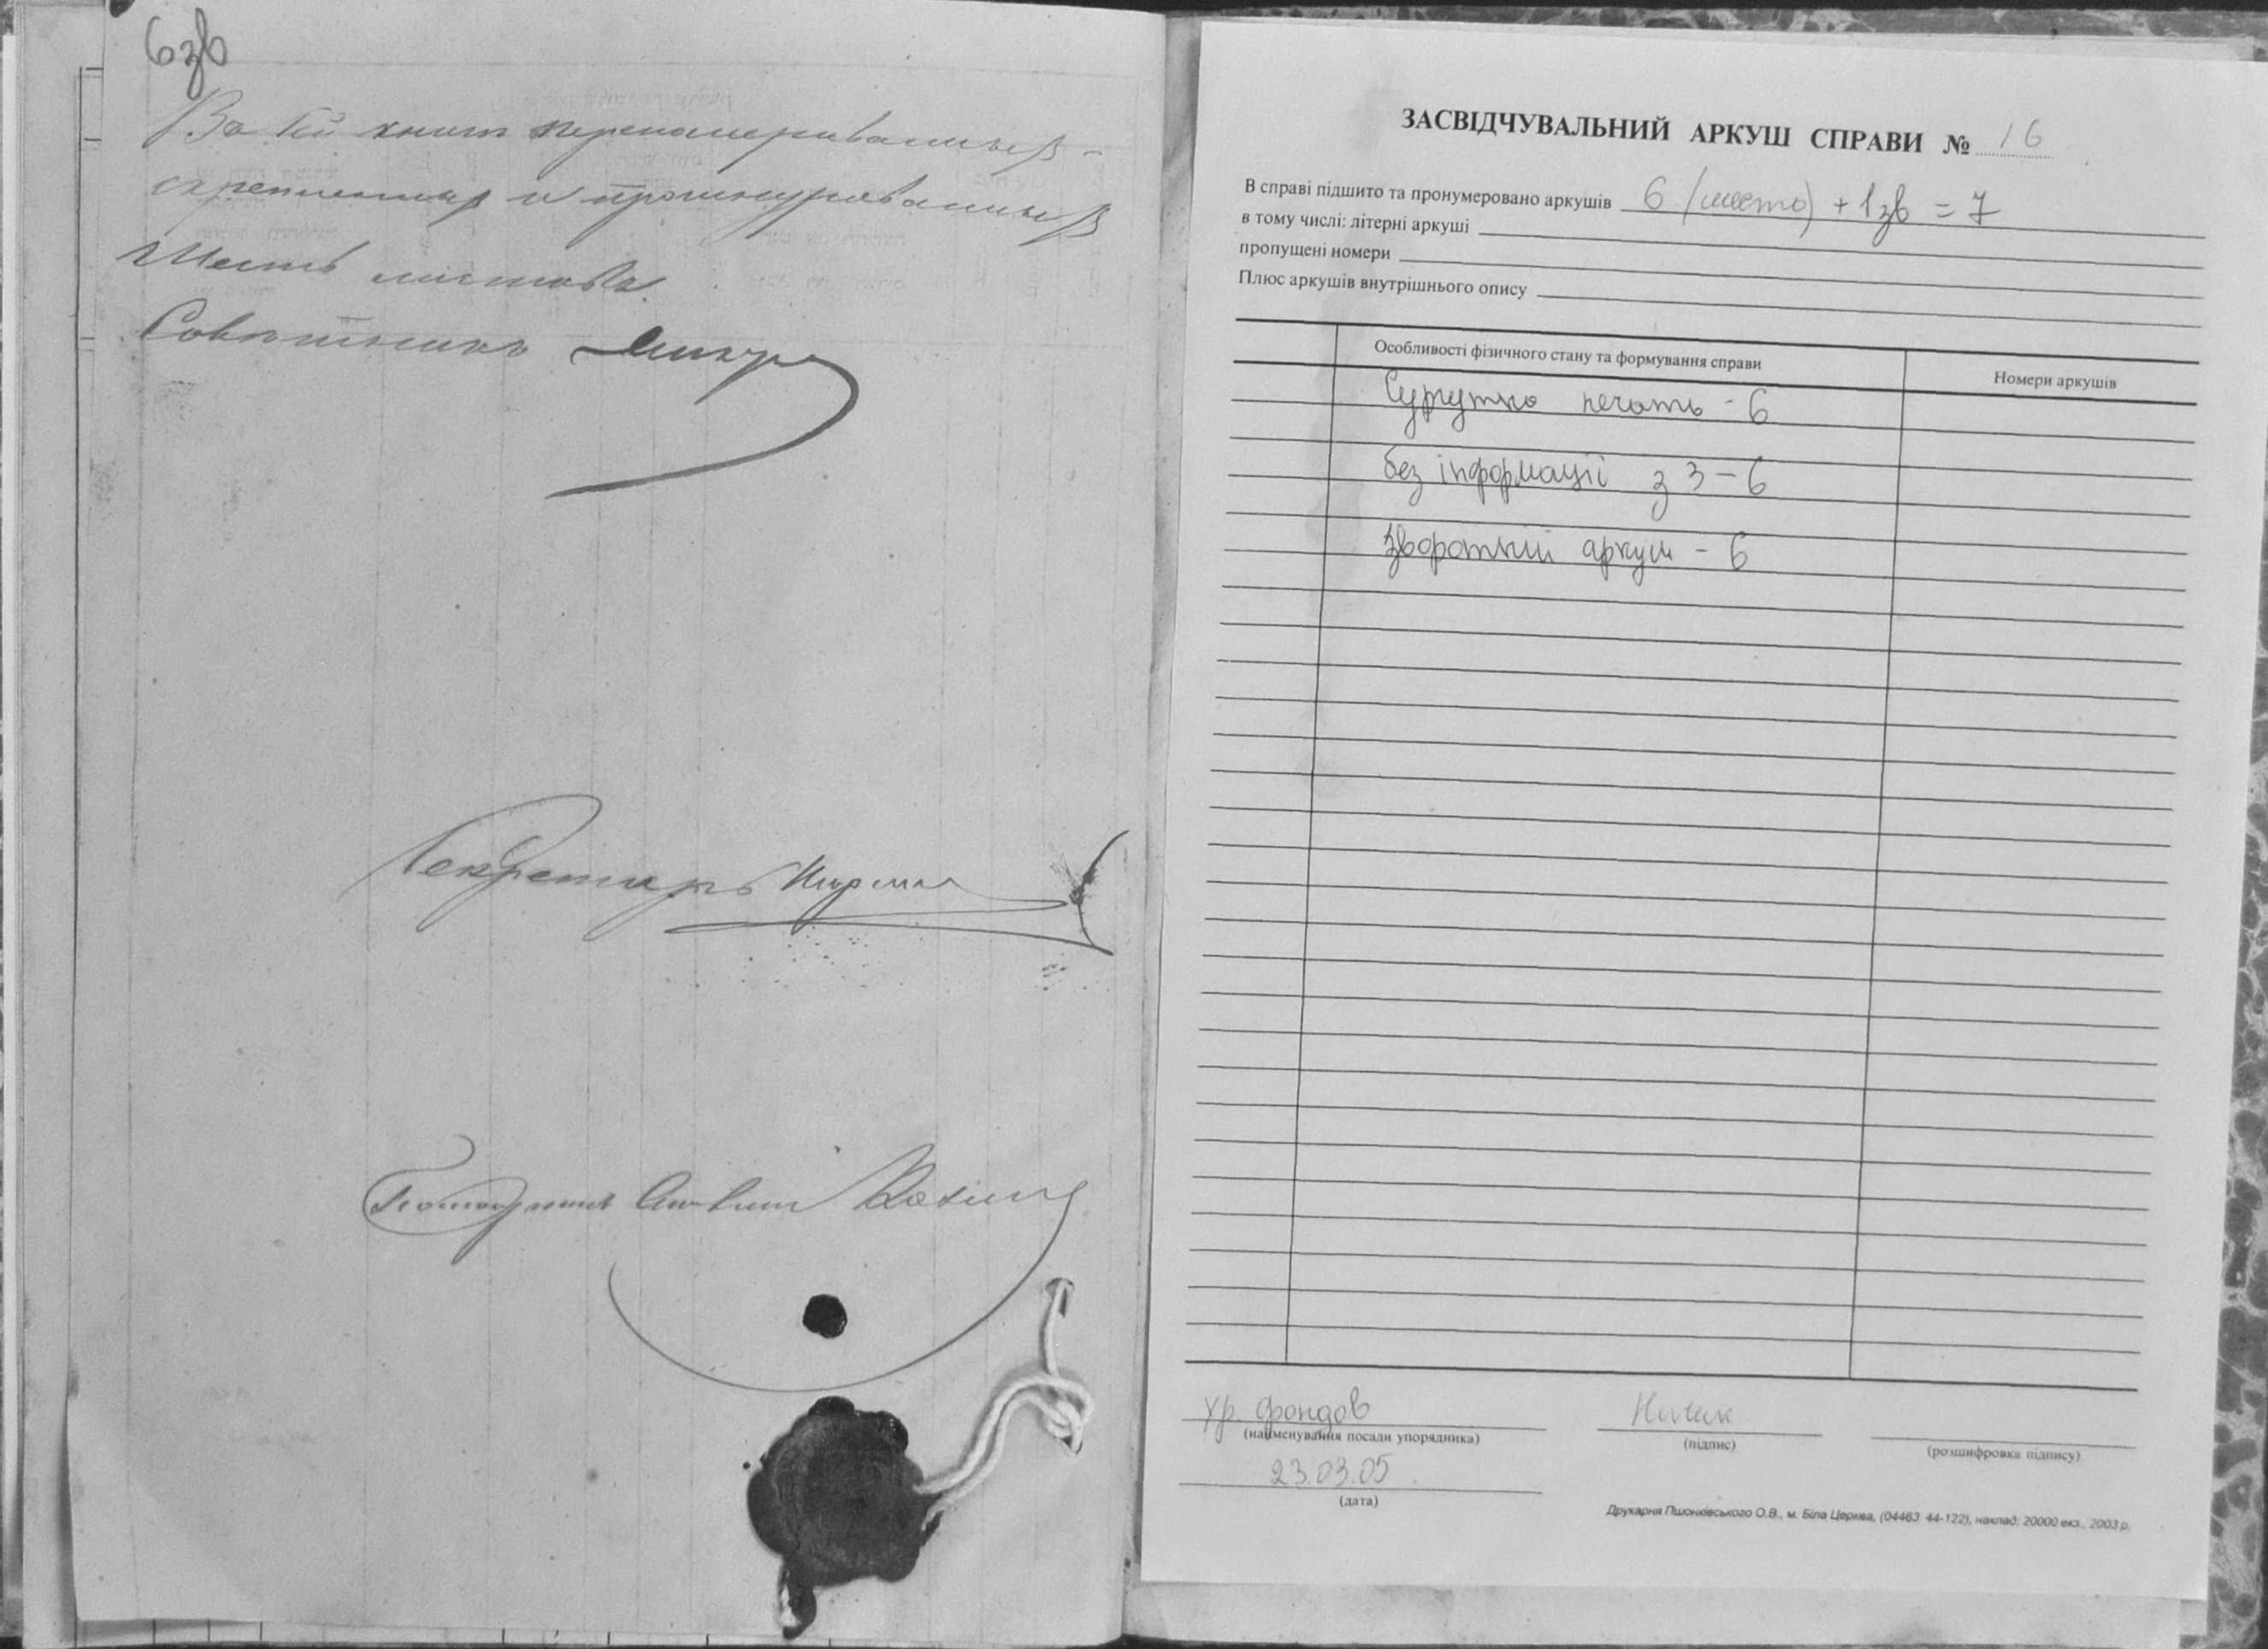 6зв
Въ сей книгѣ перенумерованныхъ
скрепленныхъ и прошнурованныхъ
Шесть листовъ.
Советникъ
Секретарь
ЗАСВІДЧУВАЛЬНИЙ АРКУШ СПРАВИ № 16
В справі підшито та пронумеровано аркушів 6 (шість) + 1зв = 7
в тому числі: літерні аркуші
пропущені номери
Плюс аркушів внутрішнього опису
Особливості фізичного стану та формування справи
Номери аркушів
Сургутна печать - 6
без інформації з 3 – 6
зворотній аркуш – 6
хр. фондов
(найменування посади упорядника)
(підпис)
(розшифровка підпису)
23.03.05
(дата)
Друкарня Пшонківського О.В., м. Біла Церква, (04463 44-122), наклад: 20000 екз., 2003 р.